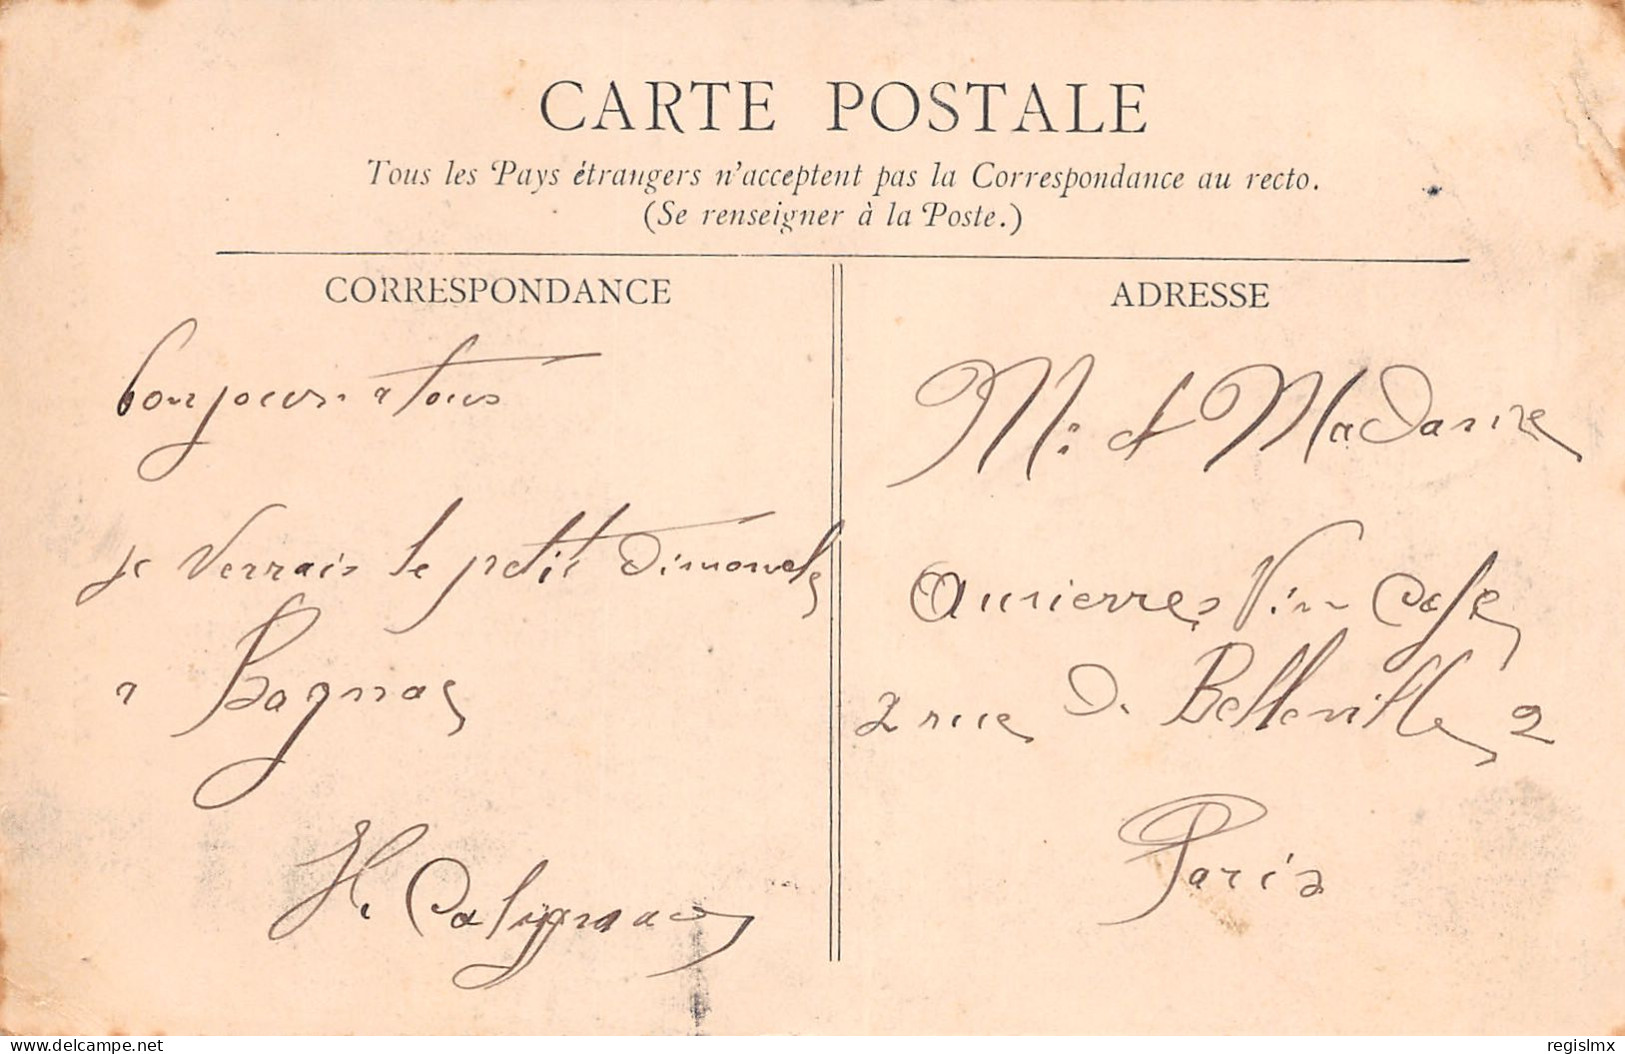 CARTE POSTALE
Tous les Pays étrangers n'acceptent pas la Correspondance au recto.
(Se renseigner à la Poste.)
CORRESPONDANCE
bonjour a tous
je verrais le petit
a Bagnac
H. Calignac
ADRESSE
Mr et Madame
Vin Cafe
2 rue De Belleville 2
Paris
delcampe.net
regislmx